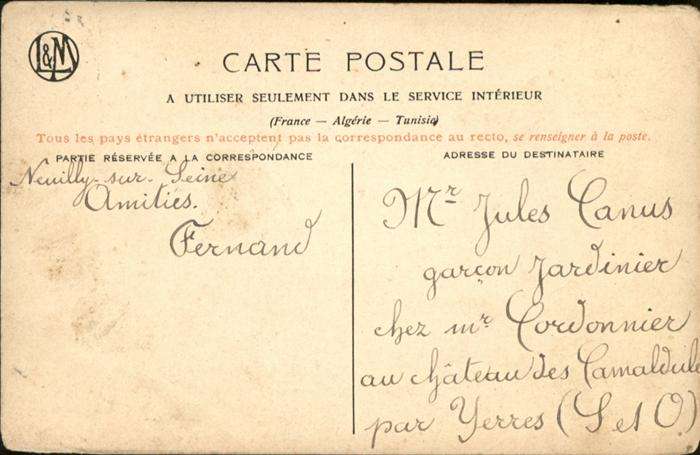 L&M
CARTE POSTALE
A UTILISER SEULEMENT DANS LE SERVICE INTÉRIEUR
(France — Algérie — Tunisie)
Tous les pays étrangers n'acceptent pas la correspondance au recto, se renseigner à la poste.
PARTIE RÉSERVÉE A LA CORRESPONDANCE
Neuilly-sur-Seine
Amitiés.
Fernand
ADRESSE DU DESTINATAIRE
Mr Jules Canus
garçon Jardinier
chez mr Cordonnier
au château des Camaldule
par Yerres (S et O)